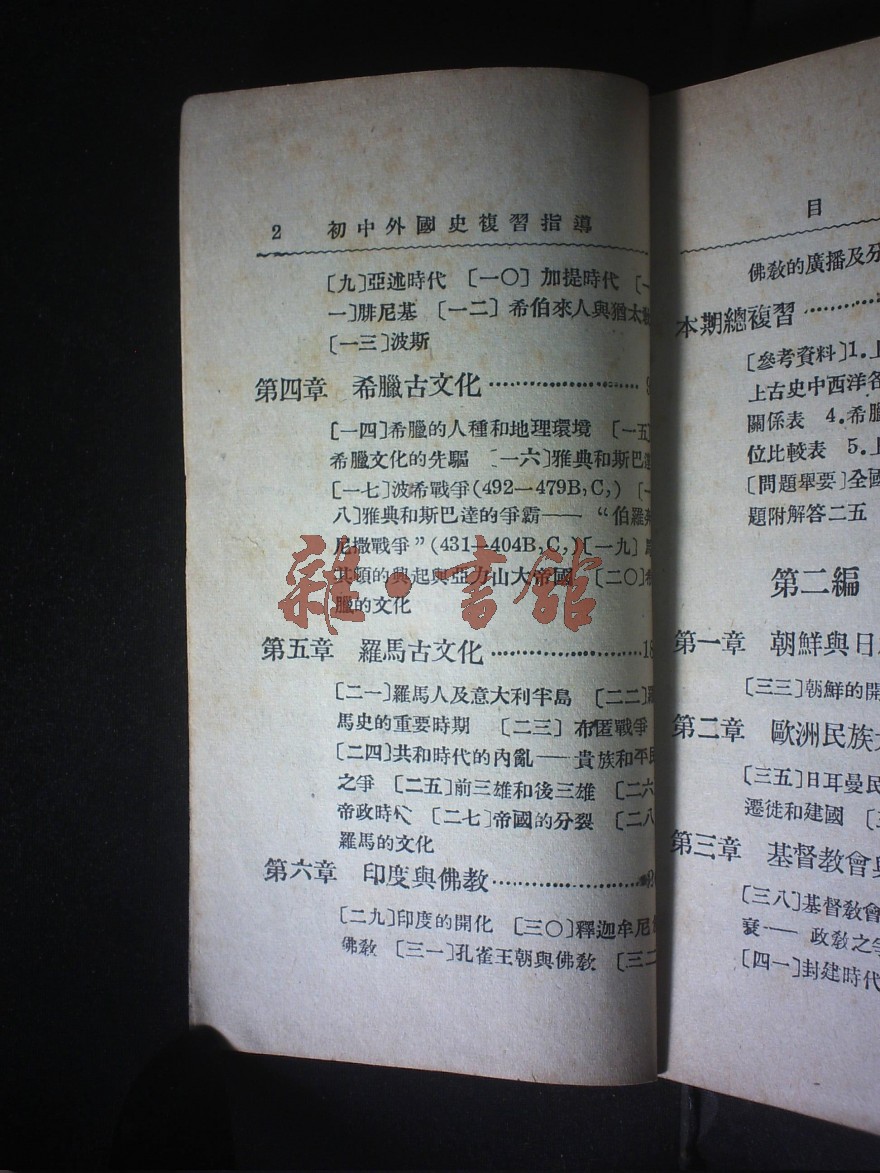 2 初中外國史複習指導
〔九〕亞述時代 〔一〇〕加提時代 〔一
一〕腓尼基 〔一二〕希伯來人與猶太
〔一三〕波斯
第四章 希臘古文化
〔一四〕希臘的人種和地理環境 〔一五
希臘文化的先驅 〔一六〕雅典和斯巴達
〔一七〕波希戰爭(492—479B,C,) 〔一
八〕雅典和斯巴達的爭霸——“伯羅
尼撒戰爭”(431—404B,C,)〔一九〕
其頓的興起與亞力山大帝國 〔二〇〕
臘的文化
第五章 羅馬古文化 18
〔二一〕羅馬人及意大利半島 〔二二〕羅
馬史的重要時期 〔二三〕布匿戰爭
〔二四〕共和時代的內亂——貴族和平民
之爭 〔二五〕前三雄和後三雄 〔二六
帝政時代 〔二七〕帝國的分裂 〔二八
羅馬的文化
第六章 印度與佛教
〔二九〕印度的開化 〔三〇〕釋迦牟尼
佛教 〔三一〕孔雀王朝與佛教 〔三二
目
佛教的廣播及分
本期總複習
〔參考資料〕1.上
上古史中西洋各
關係表 4.希臘
位比較表 5.上
〔問題舉要〕全國
題附解答二五
第二編
第一章 朝鮮與日
〔三三〕朝鮮的開
第二章 歐洲民族大
〔三五〕日耳曼民
遷徙和建國
第三章 基督教會與
〔三八〕基督教會
衰——政教之爭
〔四一〕封建時代
雜·書館